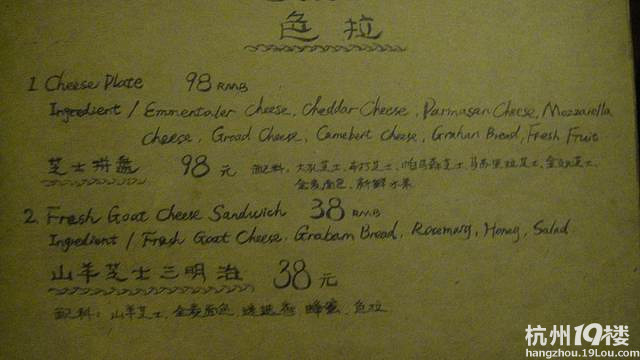 色拉
1. Cheese Plate 98 RMB
Ingredient / Emmentaler Cheese, Cheddar Cheese, Parmasan Cheese, Mozzarella
Cheese, Groad Cheese, Camebert cheese, Graham Bread, Fresh Fruit
芝士拼盘 98元 配料: 大孔芝士, 车打芝士, 帕马森芝士, 马苏里拉芝士, 金文芝士,
全麦面包, 新鲜水果
2. Fresh Goat Cheese Sandwich 38 RMB
Ingredient / Fresh Goat Cheese, Graham Bread, Rosemary, Honey, Salad
山羊芝士三明治 38元
配料: 山羊芝士, 全麦面包, 迷迭香, 蜂蜜, 色拉
杭州19楼
hangzhou.19Lou.com